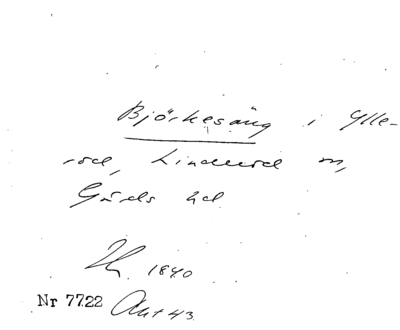 Björkesäng i Ylle-
röd, Linderöd sn,
Gärds hd
1840
Nr 7722 Akt 43